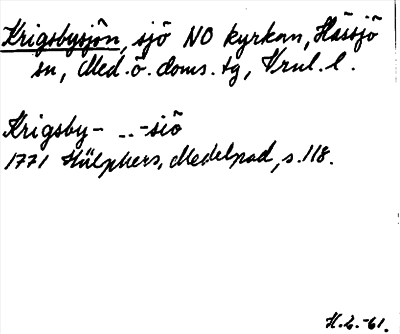 Krigsbysjön, sjö NO kyrkan, Hässjö
sn, Med. ö. doms. tg, Vrnl. l.
Krigsby- _ .. -siö
1771 Hülphers, Medelpad, s. 118.
H.L.-61.